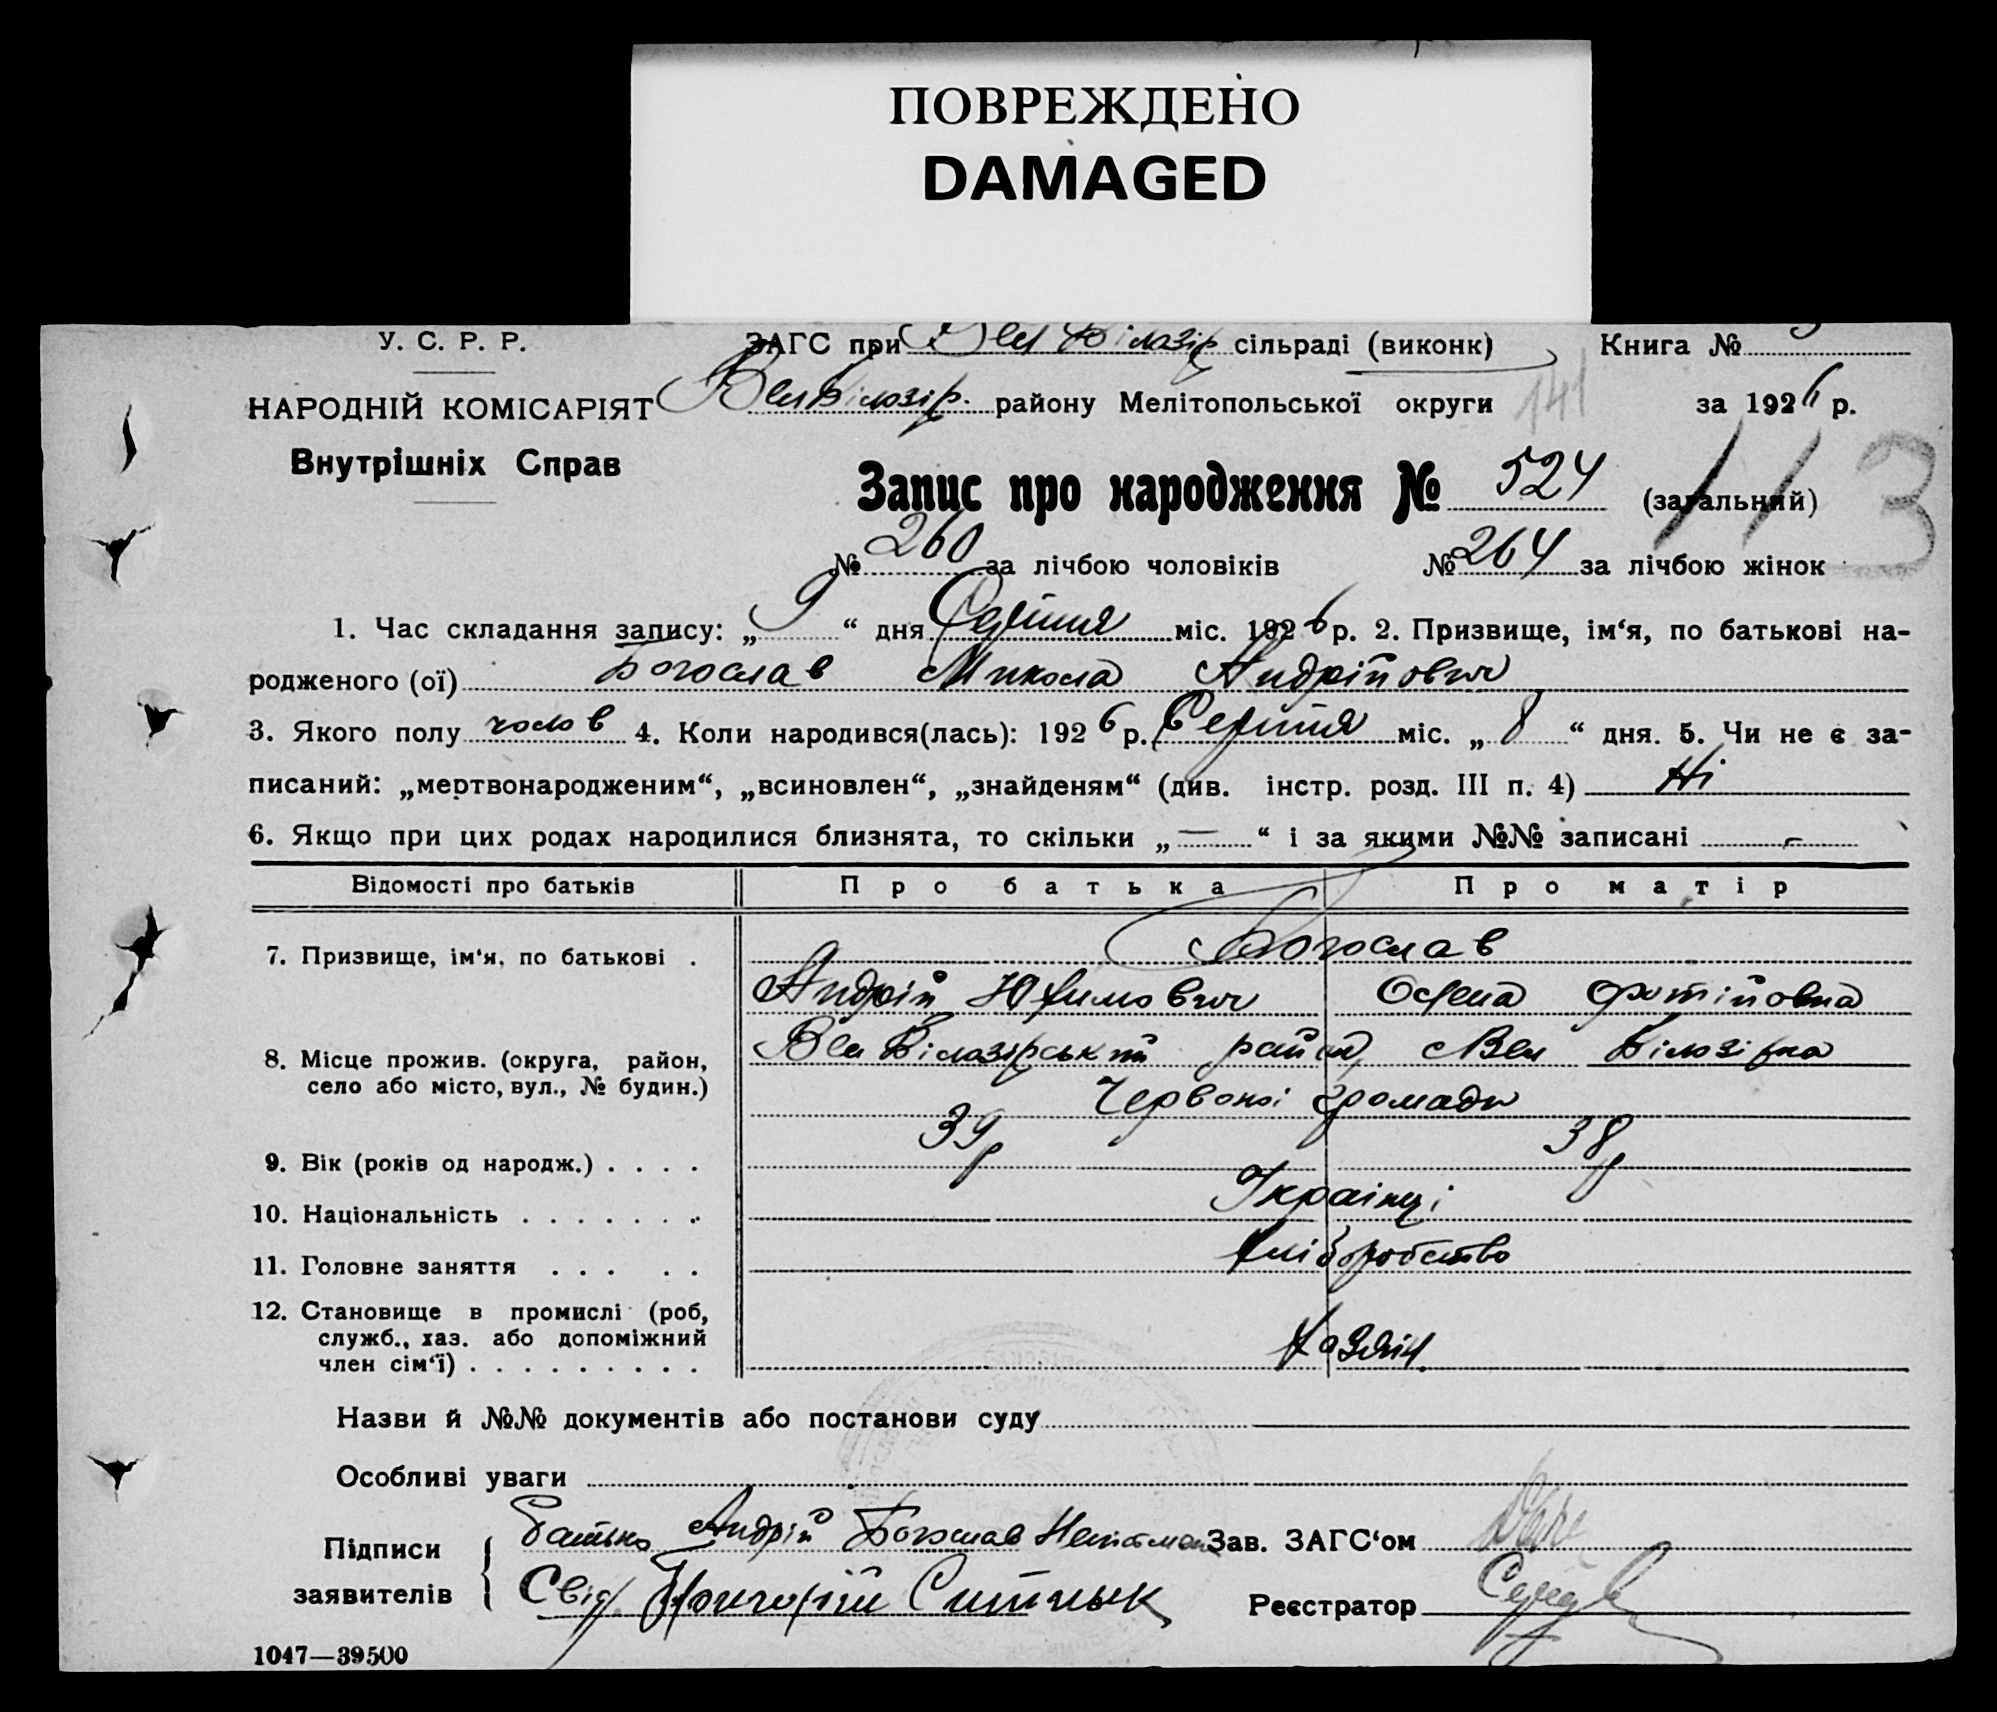 ПОВРЕЖДЕНО
DAMAGED
У. С. Р. Р. ЗАГС при Вел Білозір сільраді (виконк) Книга №
НАРОДНІЙ КОМІСАРІЯТ Вел Білозір. району Мелітопольської округи 141 за 1926 р.
Внутрішніх Справ
Запис про народження № 524 (загальний) 113
№ 260 за лічбою чоловіків № 264 за лічбою жінок
1. Час складання запису: „ 9 “ дня Серпня міс. 1926 р. 2. Призвище, ім‘я, по батькові на-
родженого (ої) Богослав Микола Андрійович
3. Якого полу чолов 4. Коли народився(лась): 1926 р. Серпня міс. „ 8 “ дня. 5. Чи не є за-
писаний: „мертвонародженим“, „всиновлен“, „знайденям“ (див. інстр. розд. III п. 4) Ні
6. Якщо при цих родах народилися близнята, то скільки „ — “ і за якими №№ записані –
Відомості про батьків Про батька Про матір
7. Призвище, ім‘я, по батькові . Богослав
Андрій Юхимович Фотійовна
8. Місце прожив. (округа, район, село або місто, вул., № будин.) Вел Білозірський район, Вел Білозірка
Червоної громади
9. Вік (років од народж.) . . . . 39р 38р
10. Національність . . . . . . . Українці
11. Головне заняття . . . . . хліборобство
12. Становище в промислі (роб, служб., хаз. або допоміжний член сім‘ї) . . . . . . . . . Хазяїн.
Назви й №№ документів або постанови суду
Особливі уваги
Підписи заявителів { Батько Андрій Богослав Зав. ЗАГС‘ом
Свід. Григорій Ситнык Реєстратор
1047—39500